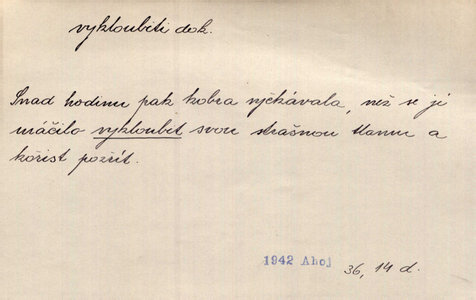 vykloubiti dok.
Snad hodinu pak kobra vyčkávala, než se jí
uráčilo vykloubit svou strašnou tlamu a
kořist pozřít.
1942 Ahoj 36, 14 d.